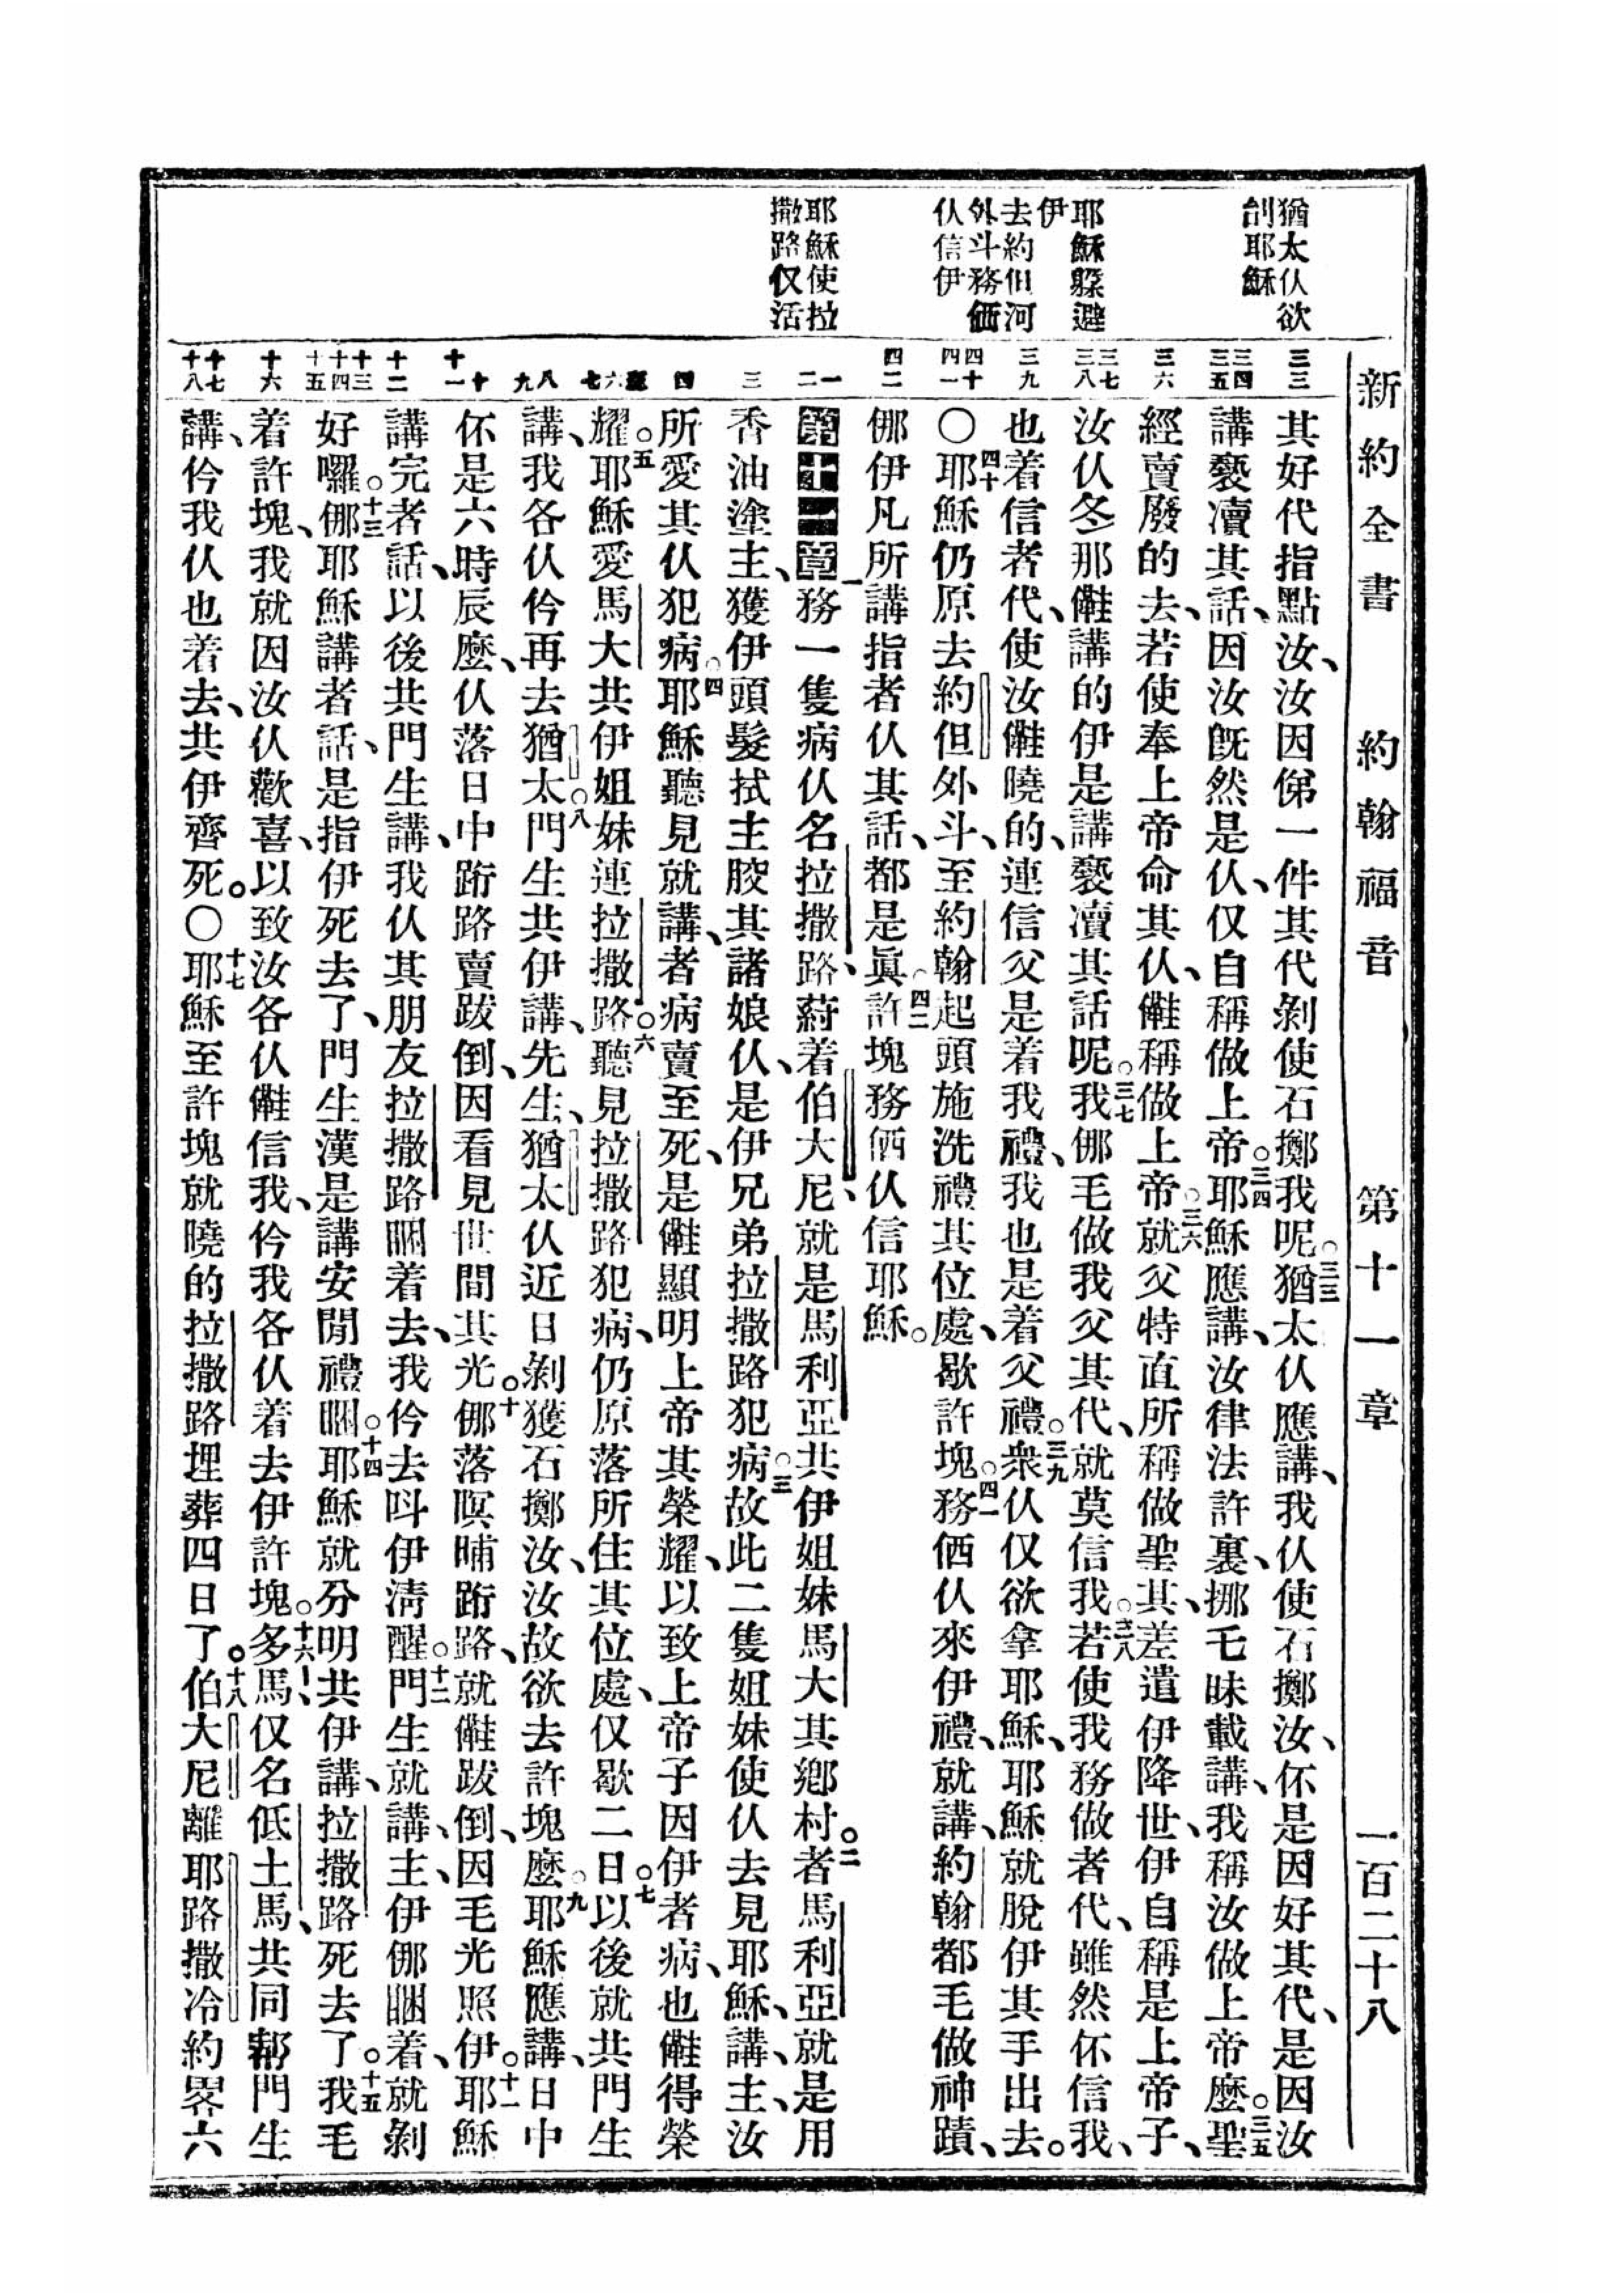 新約全書 約翰福音 第十一章 一百二十八
猶太仈欲
刣耶穌
耶穌躱避
伊
去約但河
外斗務𠈁
仈信伊
耶穌使拉
撒路仅活
三三
三四
三五
三六
三七
三八
三九
四十
四一
四二
一
二
三
四
五
六
七
八
九
十
十一
十二
十三
十四
十五
十六
十七
十八
其好代指點汝、汝因俤一件其代剝使石擲我呢。三三猶太仈應講、我仈使石擲汝、伓是因好其代、是因汝
講褻瀆其話、因汝旣然是仈、仅自稱做上帝。三四耶穌應講、汝律法許裏、挪乇昧載講、我稱汝做上帝麽。三五聖
經賣廢的去、若使奉上帝命其仈、㒕稱做上帝。三六就父特直所稱做聖其、差遣伊降世、伊自稱是上帝子、
汝仈冬那㒕講的伊是講褻瀆其話呢。三七我㑚毛做我父其代、就莫信我。三八若使我務做者代、雖然伓信我、
也着信者代、使汝㒕曉的、連信父是着我禮、我也是着父禮。三九衆仈仅欲拿耶穌、耶穌就脫伊其手出去。
○四十耶穌仍原去約但外斗、至約翰起頭施洗禮其位處、歇許塊。四一務𠈁仈來伊禮、就講、約翰都毛做神蹟、
㑚伊凡所講指者仈其話、都是眞。四二許塊務𠈁仈信耶穌。
第十一章一務一隻病仈名拉撒路、蒔着伯大尼、就是馬利亞共伊姐妹馬大其鄉村。二者馬利亞就是用
香油塗主、獲伊頭髮拭主骹其諸娘仈、是伊兄弟拉撒路犯病。三故此二隻姐妹使仈去見耶穌、講、主、汝
所愛其仈犯病。四耶穌聽見就講、者病賣至死、是㒕顯明上帝其榮耀、以致上帝子因伊者病、也㒕得榮
耀。五耶穌愛馬大共伊姐妹連拉撒路。六聽見拉撒路犯病、仍原落所住其位處、仅歇二日。七以後就共門生
講、我各仈仱再去猶太。八門生共伊講、先生、猶太仈近日剝獲石擲汝、汝故欲去許塊麽。九耶穌應講、日中
伓是六時辰麽、仈落日中跴路賣跋倒、因看見世間其光。十㑚落暝晡跴路、就㒕跋倒、因毛光照伊。十一耶穌
講完者話、以後共門生講、我仈其朋友拉撒路睏着去、我仱去呌伊淸醒。十二門生就講、主、伊㑚睏着、就剝
好囉。十三㑚耶穌講者話、是指伊死去了、門生漢是講安閒禮睏。十四耶穌就分明共伊講、拉撒路死去了。十五我毛
着許塊、我就因汝仈歡喜、以致汝各仈㒕信我、仱我各仈着去伊許塊。十六多馬仅名低土馬、共同幇門生
講、仱我仈也着去、共伊齊死。○十七耶穌至許塊就曉的拉撒路埋葬四日了。十八伯大尼離耶路撒冷約畧六